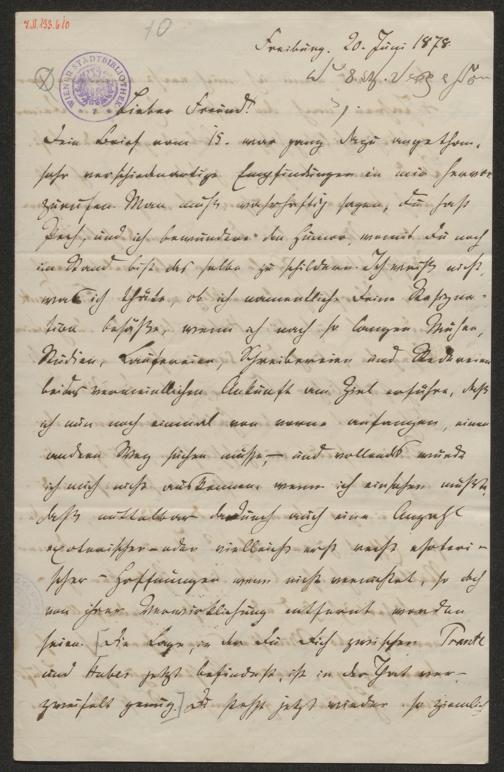 10
Freiburg. 20. Juni 1878.
WIENER STADTBIBLIOTHEK
Lieber Freund!
Dein Brief vom 15. war ganz dazu angethan,
sehr verschiedenartige Empfindungen in mir hervor-
zurufen. Man muß wahrhaftig sagen, Du hast
Pech, und ich bewundere den Humor womit Du noch
im Stand bist das selbe zu schildern. Ich weiß nicht,
was ich thäte, ob ich namentlich Deine Resigna-
tion besäße, wenn ich nach so langen Mühen,
Studien, Laufereien, Schreibereien und Redereien
bei der vermeintlichen Ankunft am Ziel erführe, daß
ich nun noch einmal von vorne anfangen, einen
andern Weg suchen müsse, – und vollends würde
ich mich nicht auskennen wenn ich einsehen müßte,
daß mittelbar dadurch auch eine Anzahl
exoterischer – oder vielleicht erst recht esoteri-
scher – Hoffnungen wenn nicht vernichtet, so doch
von ihrer Verwirklichung entfernt worden
seien. [Die Lage, in der Du Dich zwischen
und Huber jetzt befindest, ist in der That ver-
zweifelt genug.] Du stehst jetzt wieder so ziemlich